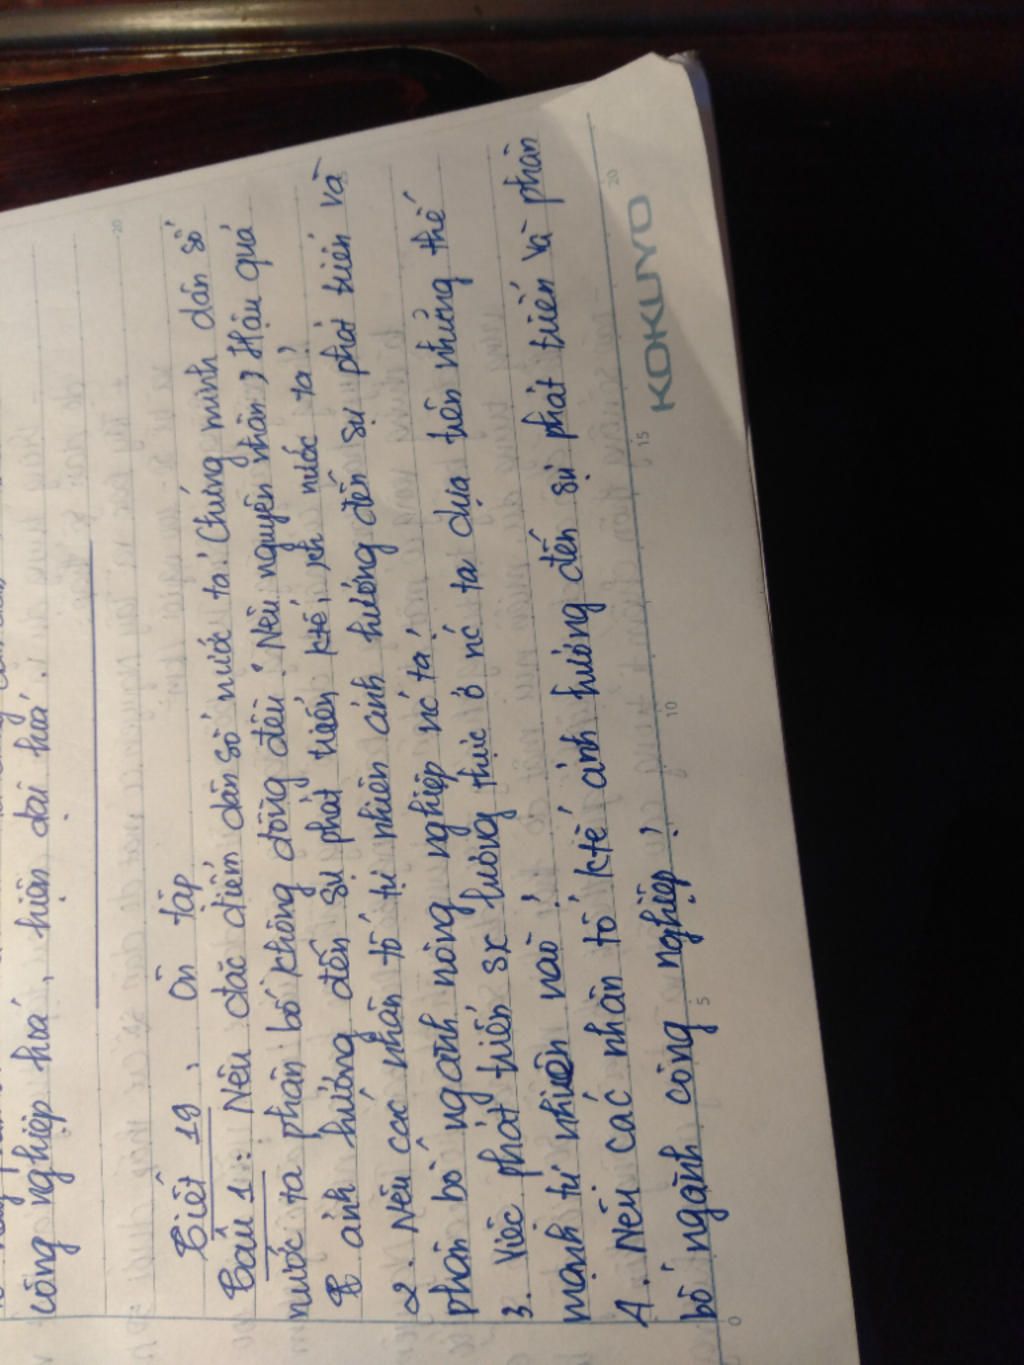 công nghiệp hoá, hiện đại hoá.
Tiết 19. Ôn tập
Câu 1: Nêu đặc điểm dân số nước ta? Chứng minh dân số
nước ta phân bố không đồng đều? Nêu nguyên nhân, Hậu quả
ảnh hưởng đến sự phát triển ktế, xh nước ta?
2. Nêu các nhân tố tự nhiên ảnh hưởng đến sự phát triển và
phân bố ngành nông nghiệp nc ta?
3. Việc phát triển sx lương thực ở nc ta dựa trên những thế
mạnh tự nhiên nào?
4. Nêu các nhân tố ktế ảnh hưởng đến sự phát triển và phân
bố ngành công nghiệp?
0
5
10
15
20
KOKUYO